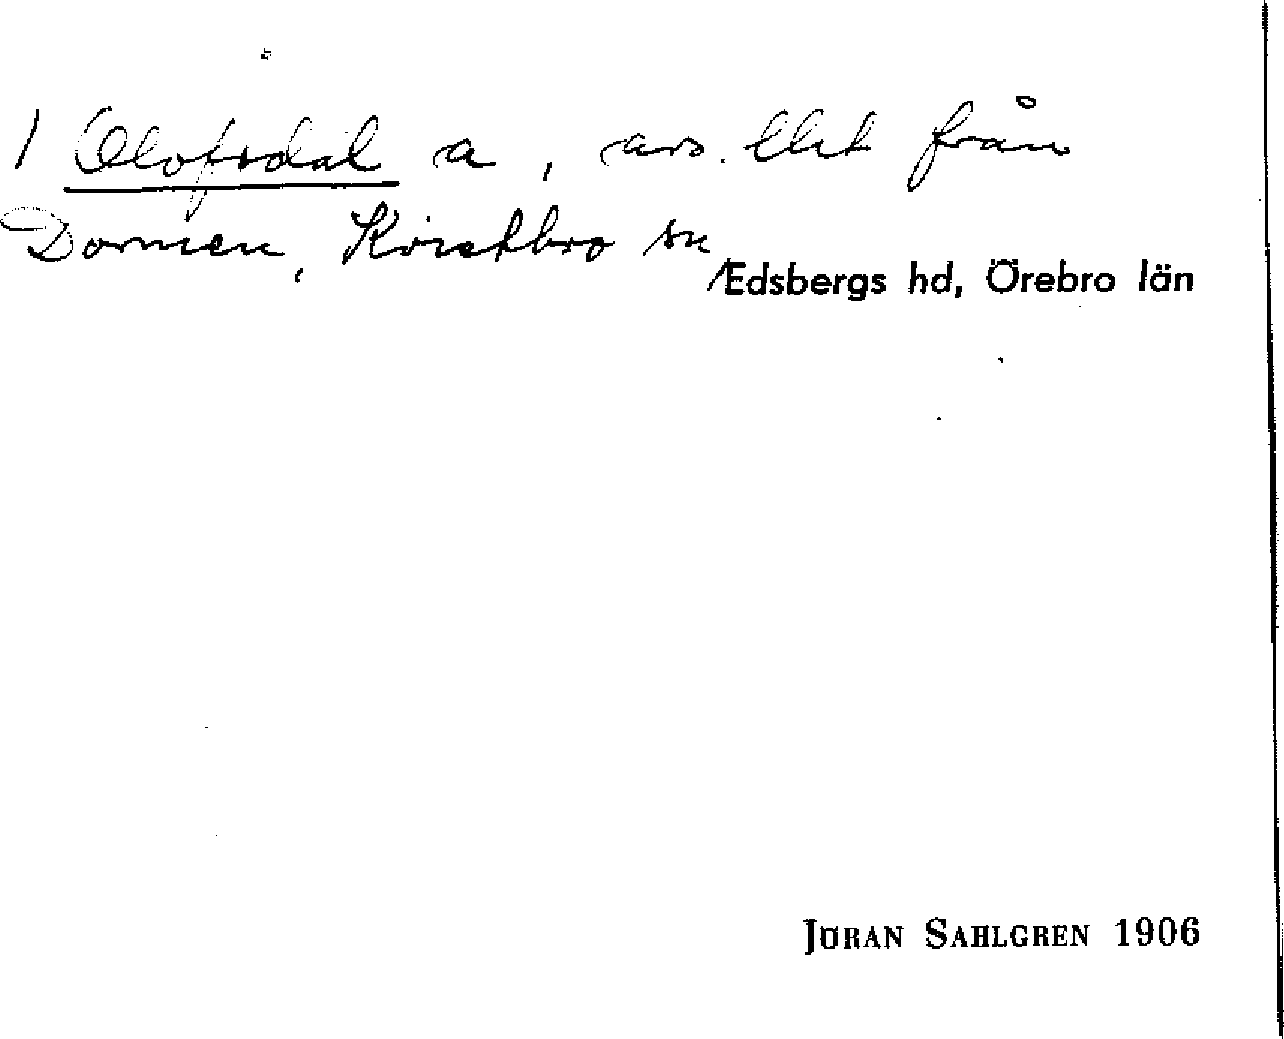 1 Olofsdal a, avs. Elet från
Dormen, Kvistbro sn
Edsbergs hd, Örebro län
JÖRAN SAHLGREN 1906